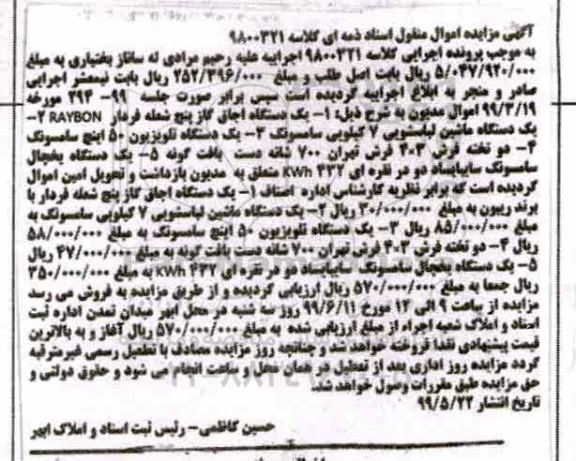 آگهی مزایده اموال منقول اسناد ذمه ای کلاسه ۹۸۰۰۳۲۱
به موجب پرونده اجرایی کلاسه ۹۸۰۰۳۲۱ اجراییه علیه رحیم مرادی له ساناز بختیاری به مبلغ
۵/۰۴۷/۹۲۰/۰۰۰ ریال بابت اصل طلب و مبلغ ۲۵۲/۳۹۶/۰۰۰ ریال بابت نیمعشر اجرایی
صادر و منجر به ابلاغ اجراییه گردیده است سپس برابر صورت جلسه ۹۹- ۲۹۴ مورخه
۹۹/۳/۱۹ اموال مدیون به شرح ذیل: ۱- یک دستگاه اجاق گاز پنج شعله فردار RAYBON ۲-
یک دستگاه ماشین لباسشویی ۷ کیلویی سامسونگ ۳- یک دستگاه تلویزیون ۵۰ اینچ سامسونگ
۴- دو تخته فرش ۴۰۳ فرش تهران ۷۰۰ شانه دست بافت گونه ۵- یک دستگاه یخچال
سامسونگ سایبایساد دو در نقره ای KWh ۴۳۲ متعلق به مدیون بازداشت و تحویل امین اموال
گردیده است که برابر نظریه کارشناس اداره اصناف ۱- یک دستگاه اجاق گاز پنج شعله فردار با
برند ریبون به مبلغ ۳۰/۰۰۰/۰۰۰ ریال ۲- یک دستگاه ماشین لباسشویی ۷ کیلویی سامسونگ به
مبلغ ۸۵/۰۰۰/۰۰۰ ریال ۳- یک دستگاه تلویزیون ۵۰ اینچ سامسونگ به مبلغ ۵۸/۰۰۰/۰۰۰
ریال ۴- دو تخته فرش ۴۰۳ فرش تهران ۷۰۰ شانه دست بافت گونه به مبلغ ۴۷/۰۰۰/۰۰۰ ریال
۵- یک دستگاه یخچال سامسونگ سایبایساد دو در نقره ای KWh ۴۳۲ به مبلغ ۳۵۰/۰۰۰/۰۰۰
ریال جمعا به مبلغ ۵۷۰/۰۰۰/۰۰۰ ریال ارزیابی گردیده و از طریق مزایده به فروش می رسد
مزایده از ساعت ۹ الی ۱۲ مورخ ۹۹/۶/۱۱ روز سه شنبه در محل ابهر میدان تمدن اداره ثبت
اسناد و املاک شعبه اجراء از مبلغ ارزیابی شده به مبلغ ۵۷۰/۰۰۰/۰۰۰ ریال آغاز و به بالاترین
قیمت پیشنهادی نقدا فروخته خواهد شد و چنانچه روز مزایده مصادف با تعطیل رسمی غیرمترقبه
گردد مزایده روز اداری بعد از تعطیل در همان محل و ساعت انجام می شود و حقوق دولتی و
حق مزایده طبق مقررات وصول خواهد شد.
تاریخ انتشار ۹۹/۵/۲۲
حسین کاظمی- رئیس ثبت اسناد و املاک ابهر